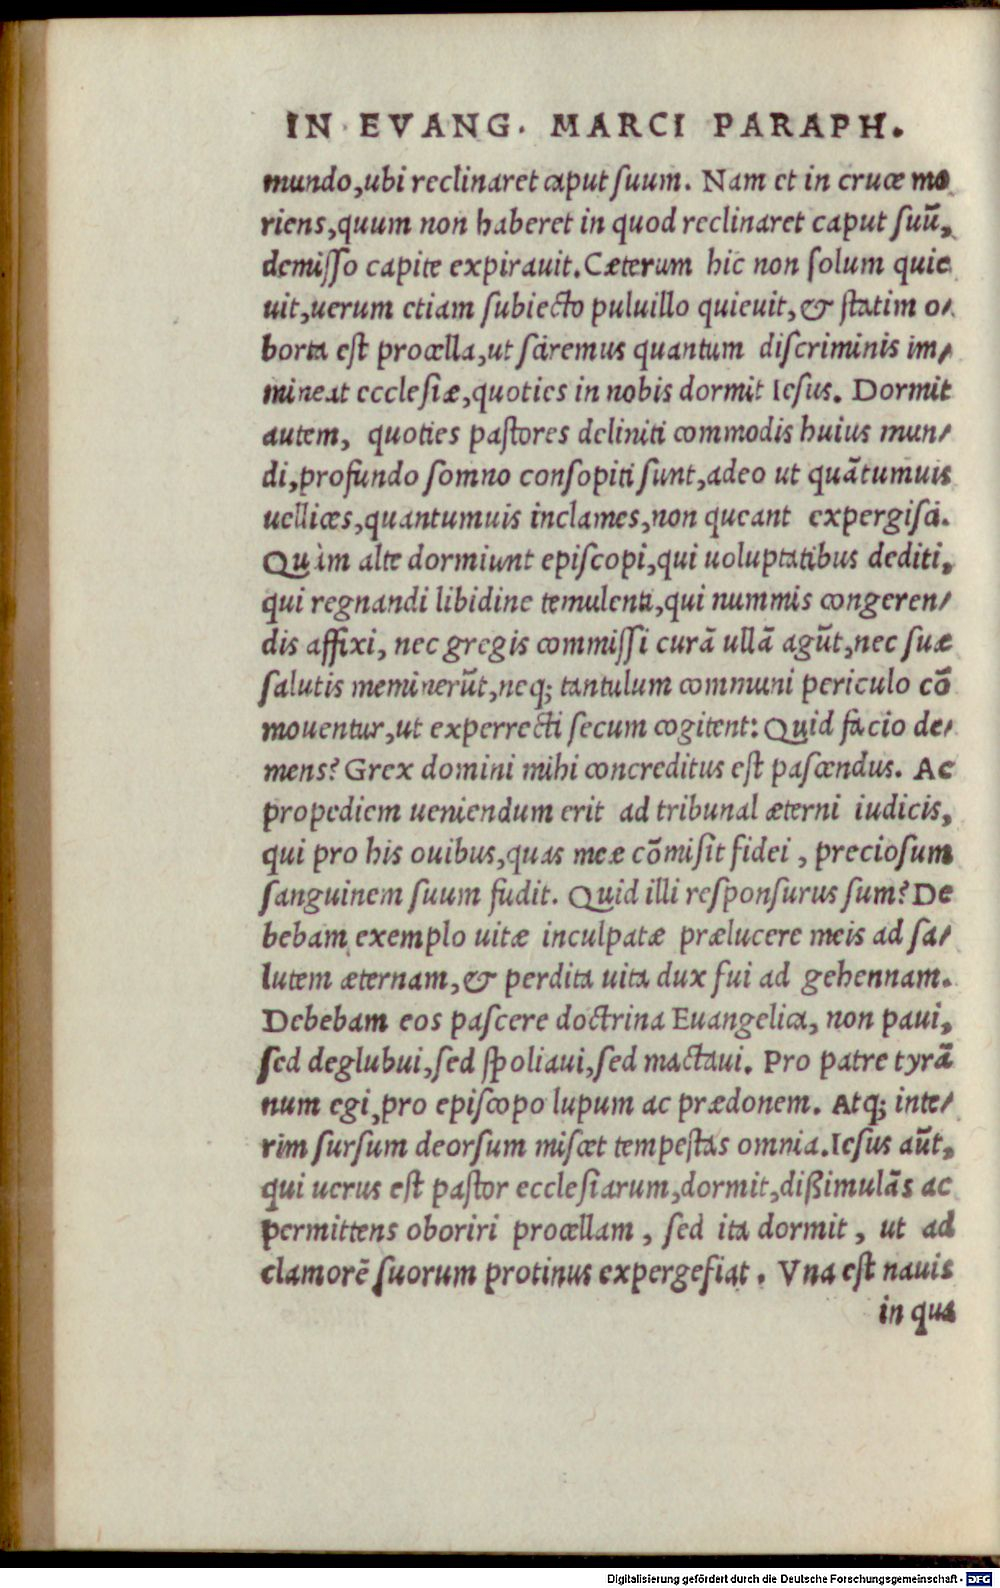 IN EVANG. MARCI PARAPH.
mundo,ubi reclinaret caput suum. Nam et in cruce mo
riens,quum non haberet in quod reclinaret caput suũ,
demisso capite expirauit.Cæterum hic non solum quie
uit,uerum etiam subiecto puluillo quieuit,& statim o-
borta est procella,ut sciremus quantum discriminis im-
mineat ecclesiæ,quoties in nobis dormit Iesus. Dormit
autem, quoties pastores deliniti commodis huius mun-
di,profundo somno consopiti sunt,adeo ut quãtumuis
uellices,quantumuis inclames,non queant expergisci.
Quàm alte dormiunt episcopi,qui uoluptatibus dediti,
qui regnandi libidine temulenti,qui nummis congeren-
dis affixi, nec gregis commissi curã ullã agũt,nec suæ
salutis meminerũt,neq; tantulum communi periculo cõ
mouentur,ut experrecti secum cogitent: Quid facio de-
mens? Grex domini mihi concreditus est pascendus. Ac
propediem ueniendum erit ad tribunal æterni iudicis,
qui pro his ouibus,quas meæ cõmisit fidei , preciosum
sanguinem suum fudit. Quid illi responsurus sum? De
bebam exemplo uitæ inculpatæ prælucere meis ad sa-
lutem æternam,& perdita uita dux fui ad gehennam.
Debebam eos pascere doctrina Euangelica, non paui,
sed deglubui,sed spoliaui,sed mactaui. Pro patre tyrã
num egi,pro episcopo lupum ac prædonem. Atq; inte-
rim sursum deorsum miscet tempestas omnia.Iesus aũt,
qui uerus est pastor ecclesiarum,dormit,dißimulãs ac
permittens oboriri procellam , sed ita dormit , ut ad
clamorẽ suorum protinus expergefiat . Vna est nauis
in qua
Digitalisierung gefördert durch die Deutsche Forschungsgemeinschaft - DFG